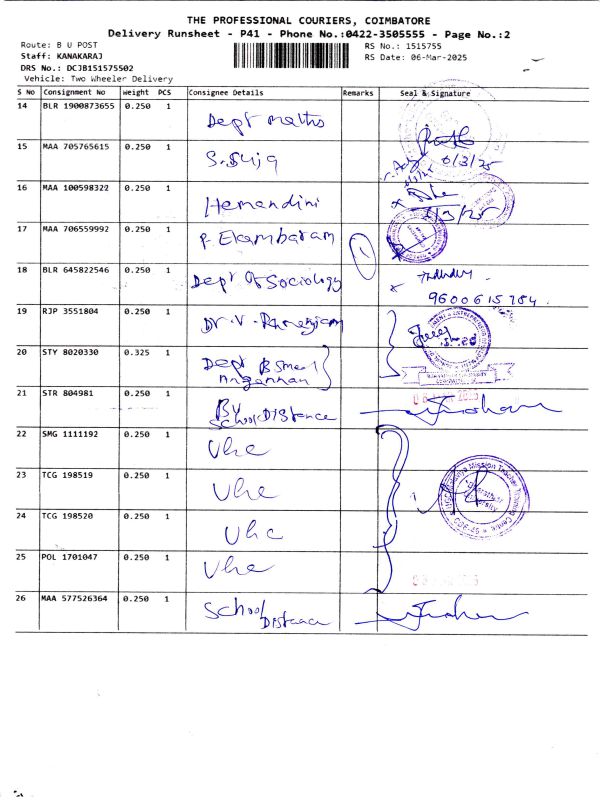 THE PROFESSIONAL COURIERS, COIMBATORE
Delivery Runsheet - P41 - Phone No.:0422-3505555 - Page No.:2
Route: B U POST
RS No.: 1515755
Staff: KANAKARAJ
RS Date: 06-Mar-2025
DRS No.: DCJB151575502
Vehicle: Two Wheeler Delivery
S No Consignment No Weight PCS Consignee Details Remarks Seal & Signature
14 BLR 1900873655 0.250 1 Dept maths
6/3/25
15 MAA 705765615 0.250 1 S. Suja
16 MAA 100598322 0.250 1 Hemandini
6/3/25
17 MAA 706559992 0.250 1 P. Ekambaram 1
18 BLR 645822546 0.250 1 Dept of Sociology
9600615784
19 RJP 3551804 0.250 1 Dr. V.
20 STY 8020330 0.325 1 Dept
21 STR 804981 0.250 1 BU School Distance
22 SMG 1111192 0.250 1 Uhc
23 TCG 198519 0.250 1 Uhc
24 TCG 198520 0.250 1 Uhc
25 POL 1701047 0.250 1 Uhc
26 MAA 577526364 0.250 1 School Distance